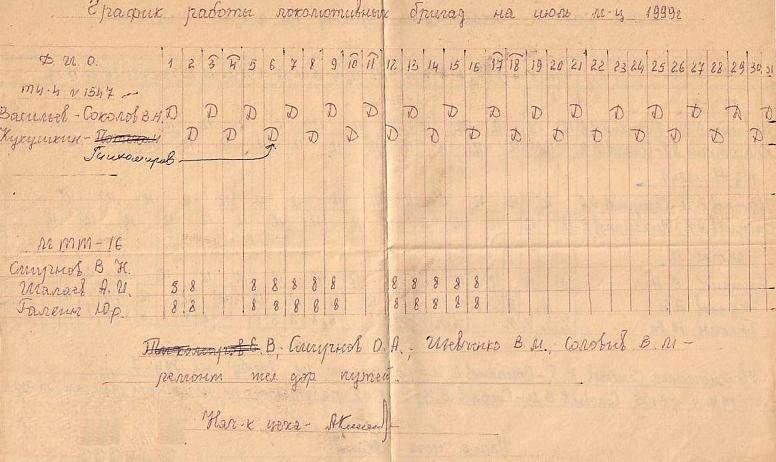 График работы локомотивных бригад на июль м-ц 1999г
Ф И. О. 1 2 3 4 5 6 7 8 9 10 11 12 13 14 15 16 17 18 19 20 21 22 23 24 25 26 27 28 29 30 31
ТУ-4 N 1547
Васильев - Соколов В.Н. Д Д Д Д Д Д Д Д Д Д Д Д Д Д Д Д
Кукушкин - Д Д Д Д Д Д Д Д Д Д Д Д Д Д Д
Тихомиров
МПТ-16
Смирнов В Н.
Шалаев А. И. 8 8 8 8 8 8 8 8 8 8 8 8
Галкин Юр. 8 8 8 8 8 8 8 8 8 8 8 8
Тихомиров Е. В, Смирнов О. А., Шевченко В М., Соловьев В. М -
ремонт жел дор путей.
Нач-к цеха -